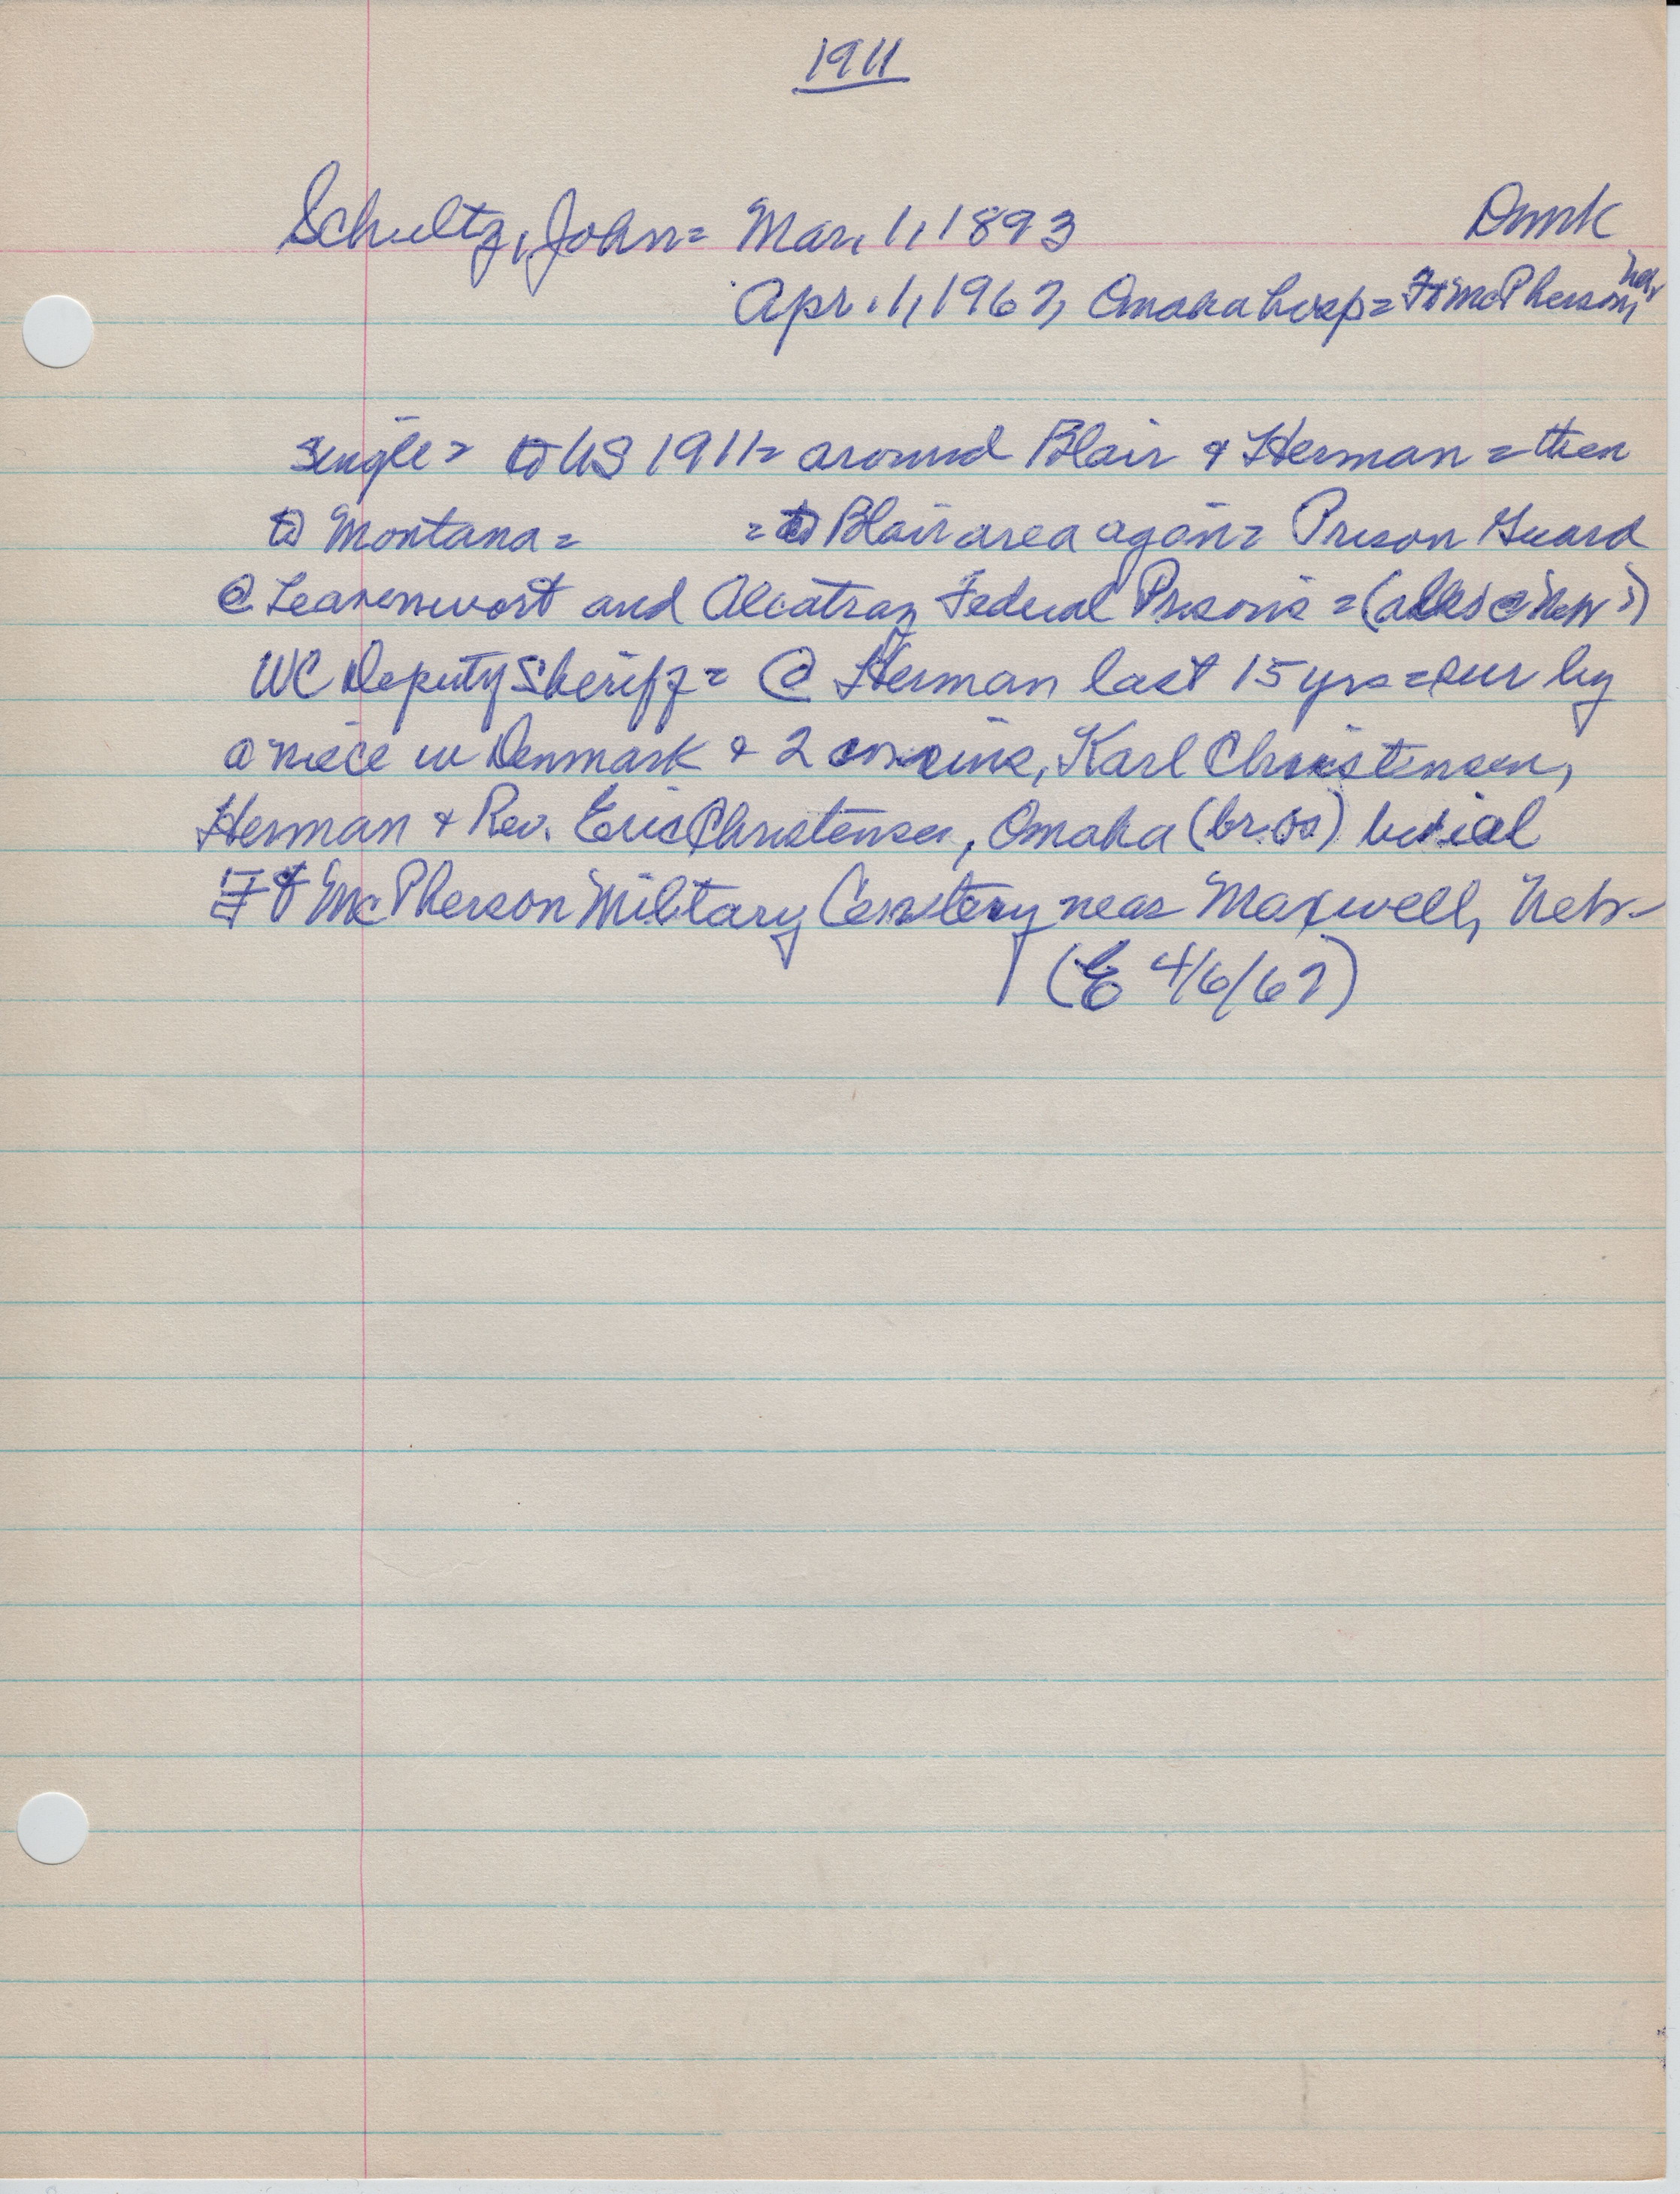 1911
Schultz, John = Mar. 1, 1893 Dmrk
Apr. 1, 1967, Omaha hosp = Ft McPherson, Nebr
single = to US 1911 = around Blair & Herman = then
to Montana = = to Blair area again = Prison Guard
@ Leavenwort and Alcatraz Federal Prisons = (
WC Deputy Sheriff = @ Herman last 15 yrs = sur by
a niece in Denmark & 2 cousins, Karl Christensen,
Herman & Rev. Eric Christensen, Omaha (bros) burial
Ft McPherson Military Cemetery near Maxwell, Nebr
(E 4/6/67)